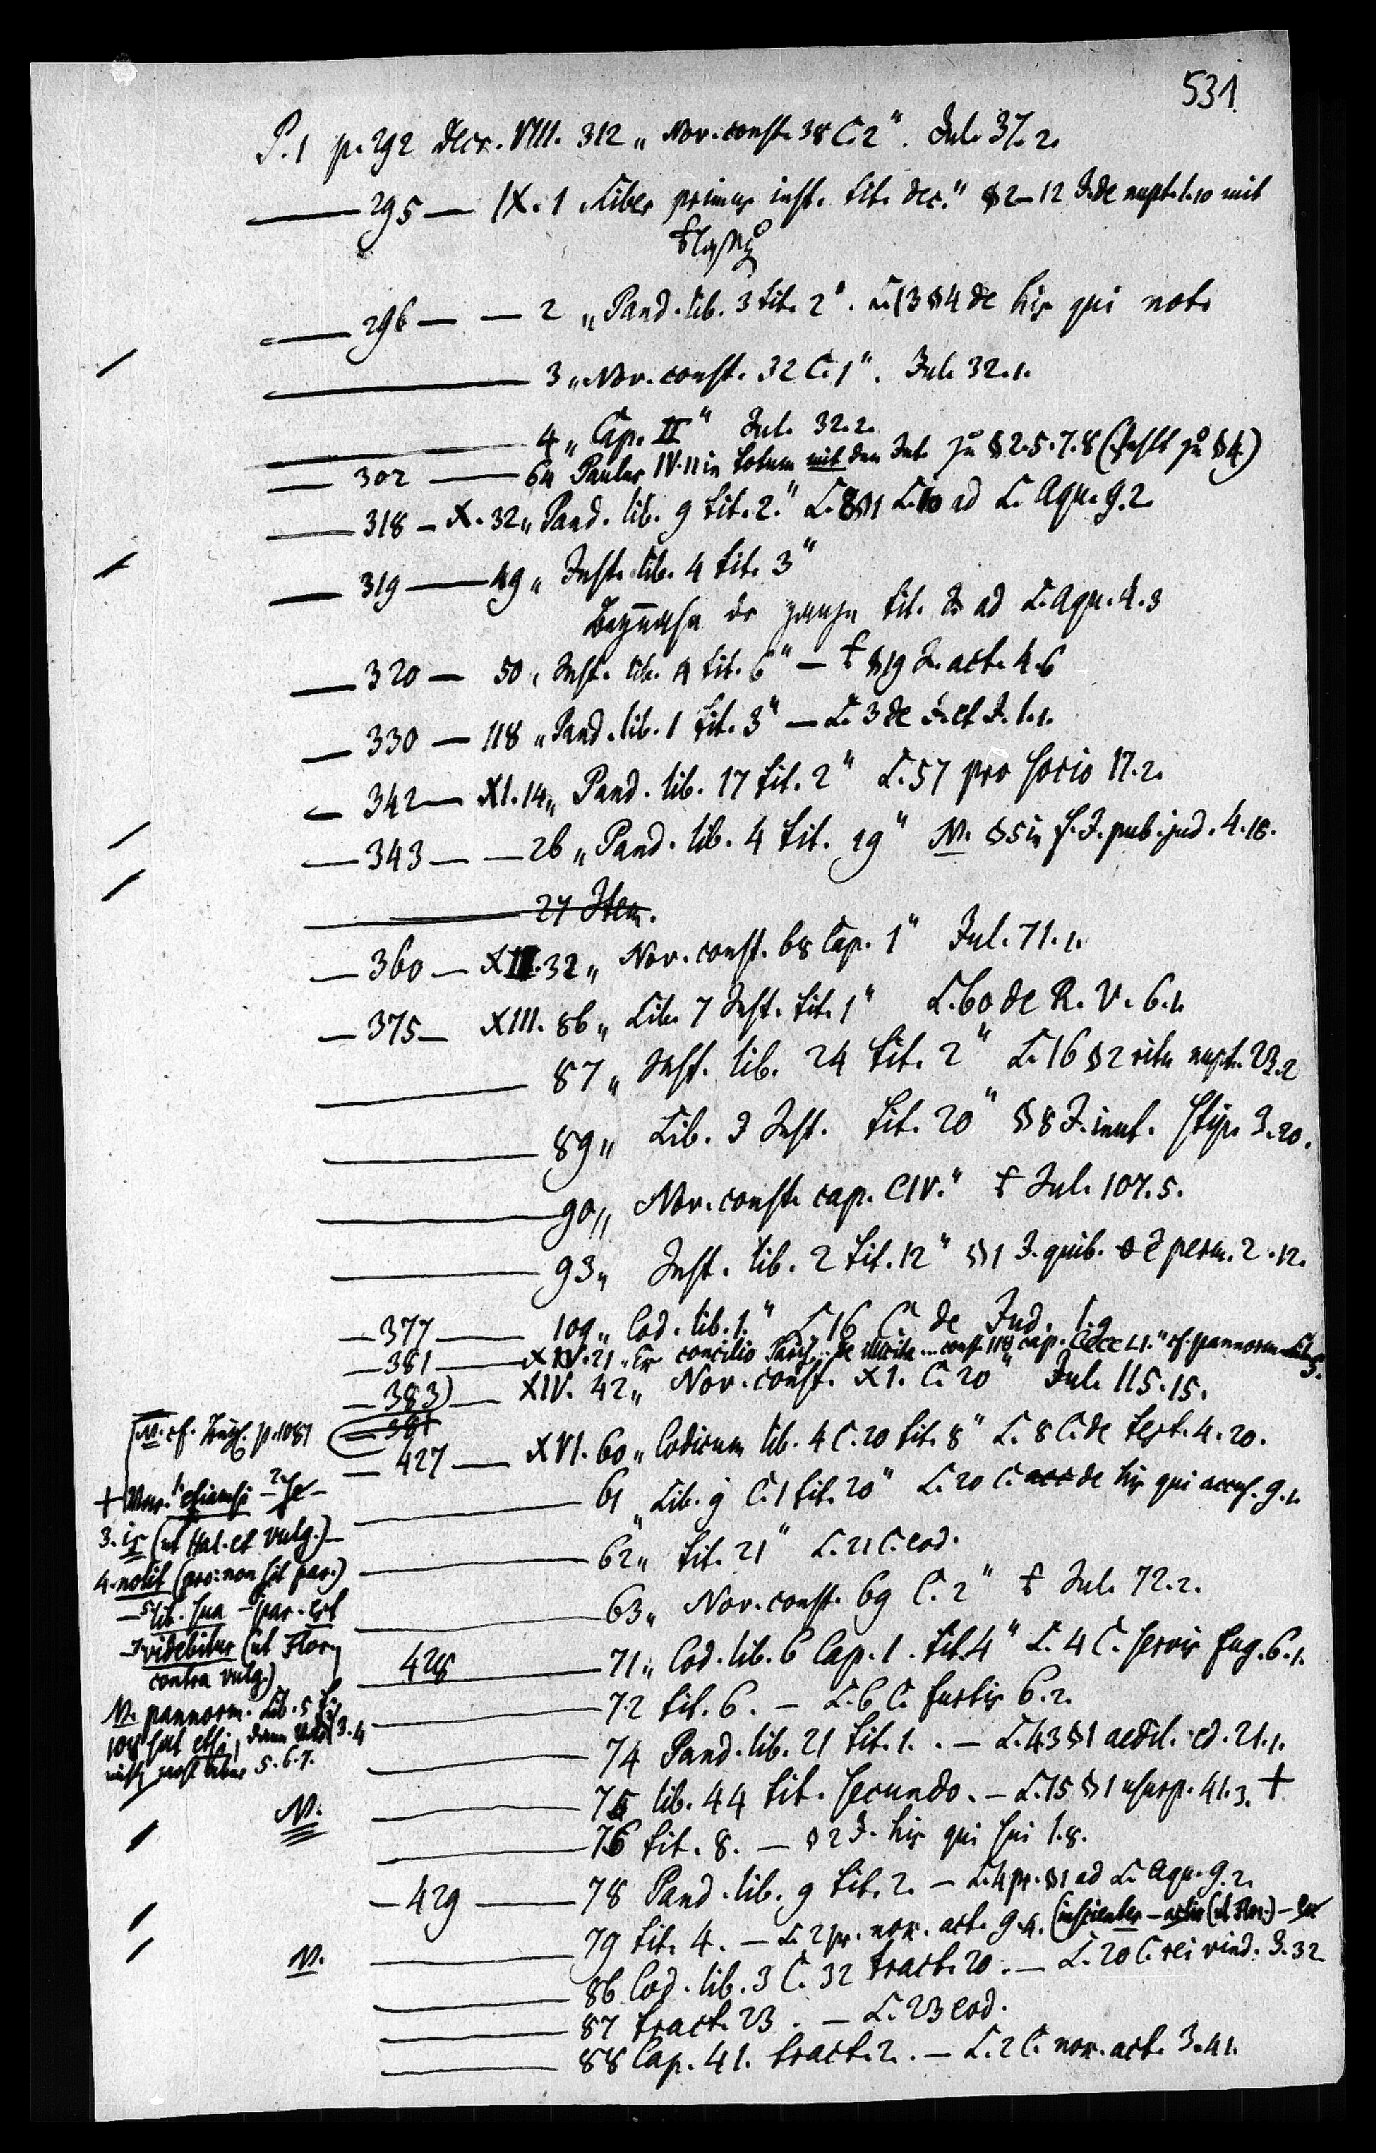 531
P. 1 p. 292 Decr. VIII. 312 „Nov. const. 38 C. 2". Jul. 37. 2.
— 295 — IX. 1 „Liber primus inst. tit. dec." § 2–12 J. de nupt. 1. 10 mit
— 296 — — 2 „Pand. lib. 3 tit. 2". L. 13 § 4 de his qui not.
— 3 „Nov. const. 32 C. 1". Jul. 32. 1.
— 4 „Cap. II" Jul. 32. 2.
— 302 — 64 Paulus IV. 11 in totum mit den Int. zu § 2. 5. 7. 8 (fehlt zu § 4)
— 318 — X. 32 „Pand. lib. 9 tit. 2." L. 8 § 1 L. 10 ad L. Aqu. 9. 2.
— 319 — 49 „Inst. lib. 4 tit. 3"
Beynahe der ganze tit. J. ad L. Aqu. 4. 3
— 320 — 50 „Inst. lib. 4 tit. 6" — † § 19 J. act. 4. 6
— 330 — 118 „Pand. lib. 1 tit. 3" — L. 3 de J. et J. 1. 1.
— 342 — XI. 14 „Pand. lib. 17 tit. 2" L. 57 pro socio 17. 2.
— 343 — — 26 „Pand. lib. 4 tit. 19" N. § 5 in f. J. pub. jud. 4. 18.
— 27 Item.
— 360 — XII. 32 „Nov. const. 68 Cap. 1" Jul. 71. 1.
— 375 — XIII. 86 „Lib. 7 Inst. tit. 1" L. 60 de R. V. 6. 1.
— 87 „Inst. lib. 24 tit. 2" L. 16 § 2 ritu nupt. 23. 2
— 89 „Lib. 3 Inst. tit. 20" § 8 J. inut. stip. 3. 20.
— 90 „Nov. const. cap. CIV." † Jul. 107. 5.
— 93 „Inst. lib. 2 tit. 12" § 1 J. quib. perm. 2. 12.
— 377 — 109 „Cod. lib. 1." L. 16 C. de Jud. 1. 9
— 381 — XIV. 21 „Ex concilio de illicita ... const. 118 cap. cf. pannorm. Lib. 5.
— 383) — XIV. 42 „Nov. const. XI. C. 20" Jul. 115. 15.
— 381
— 427 — XVI. 60 „Codicum lib. 4 C. 20 tit. 8" L. 8 C. de test. 4. 20.
— 61 „Lib. 9 C. 1 tit. 20" L. 20 C. de his qui accus. 9. 1.
— 62 „tit. 21" L. 21 C. eod.
— 63 „Nov. const. 69 C. 2" † Jul. 72. 2.
428 — 71 „Cod. lib. 6 Cap. 1. tit. 4" L. 4 C. servis fug. 6. 1.
— 72 tit. 6. — L. 6 C. furtis 6. 2.
— 74 Pand. lib. 21 tit. 1. — L. 43 § 1 aedil. ed. 21. 1.
— 75 lib. 44 tit. secundo. — L. 15 § 1 usurp. 41. 3. †
— 76 tit. 8. — § 2 J. his qui sui 1. 8.
— 429 — 78 Pand. lib. 9 tit. 2. — L. 4 pr. § 1 ad L. Aqu. 9. 2.
— 79 tit. 4. — L. 2 pr. nox. act. 9. 4. (inscienter — (ut Flor.) —
— 86 Cod. lib. 3 C. 32 tract. 20. — L. 20 C. rei vind. 3. 32
— 87 tract. 23. — L. 23 eod.
— 88 Cap. 41. tract. 2. — L. 2 C. nox. act. 3. 41.
N. cf. p. 1081
† Var. 1. etiamsi — 2.
3. is (ut Hal. et vulg.) —
4. nolit (pro: non sit par.)
— 5. lib. sua —
— 7 videbitur (ut Flor.
contra vulg.)
N. pannorm. Lib. 5
hat etsi, dann 3. 4
5. 6. 7.
N.
N.